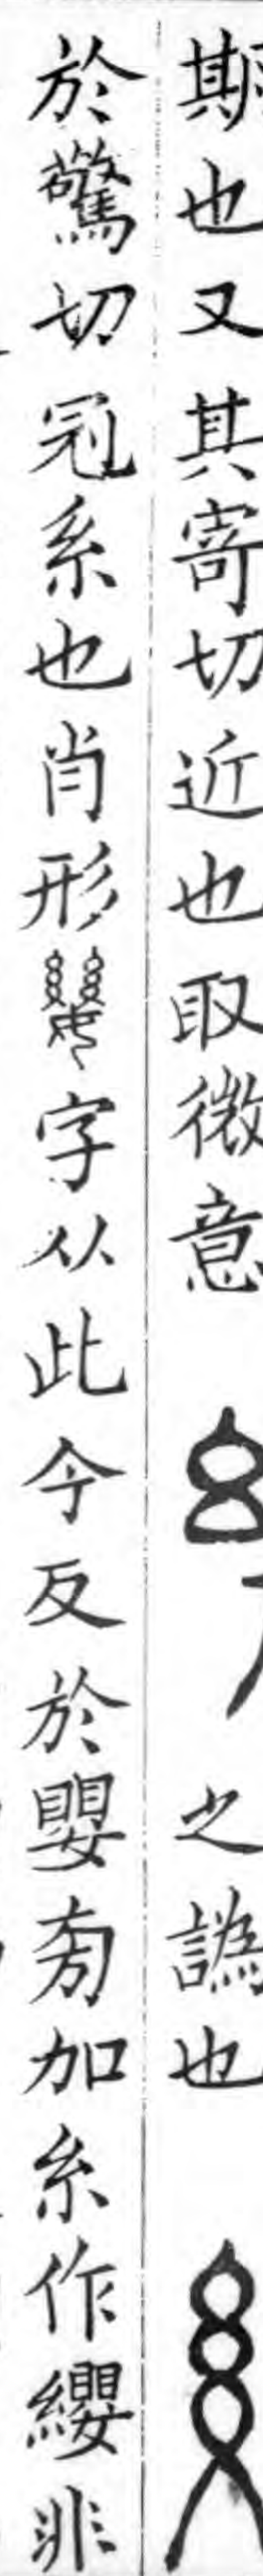 期也又其寄切近也取微意之譌也
於驚切冠系也肖形字从此今反於嬰旁加糸作纓非